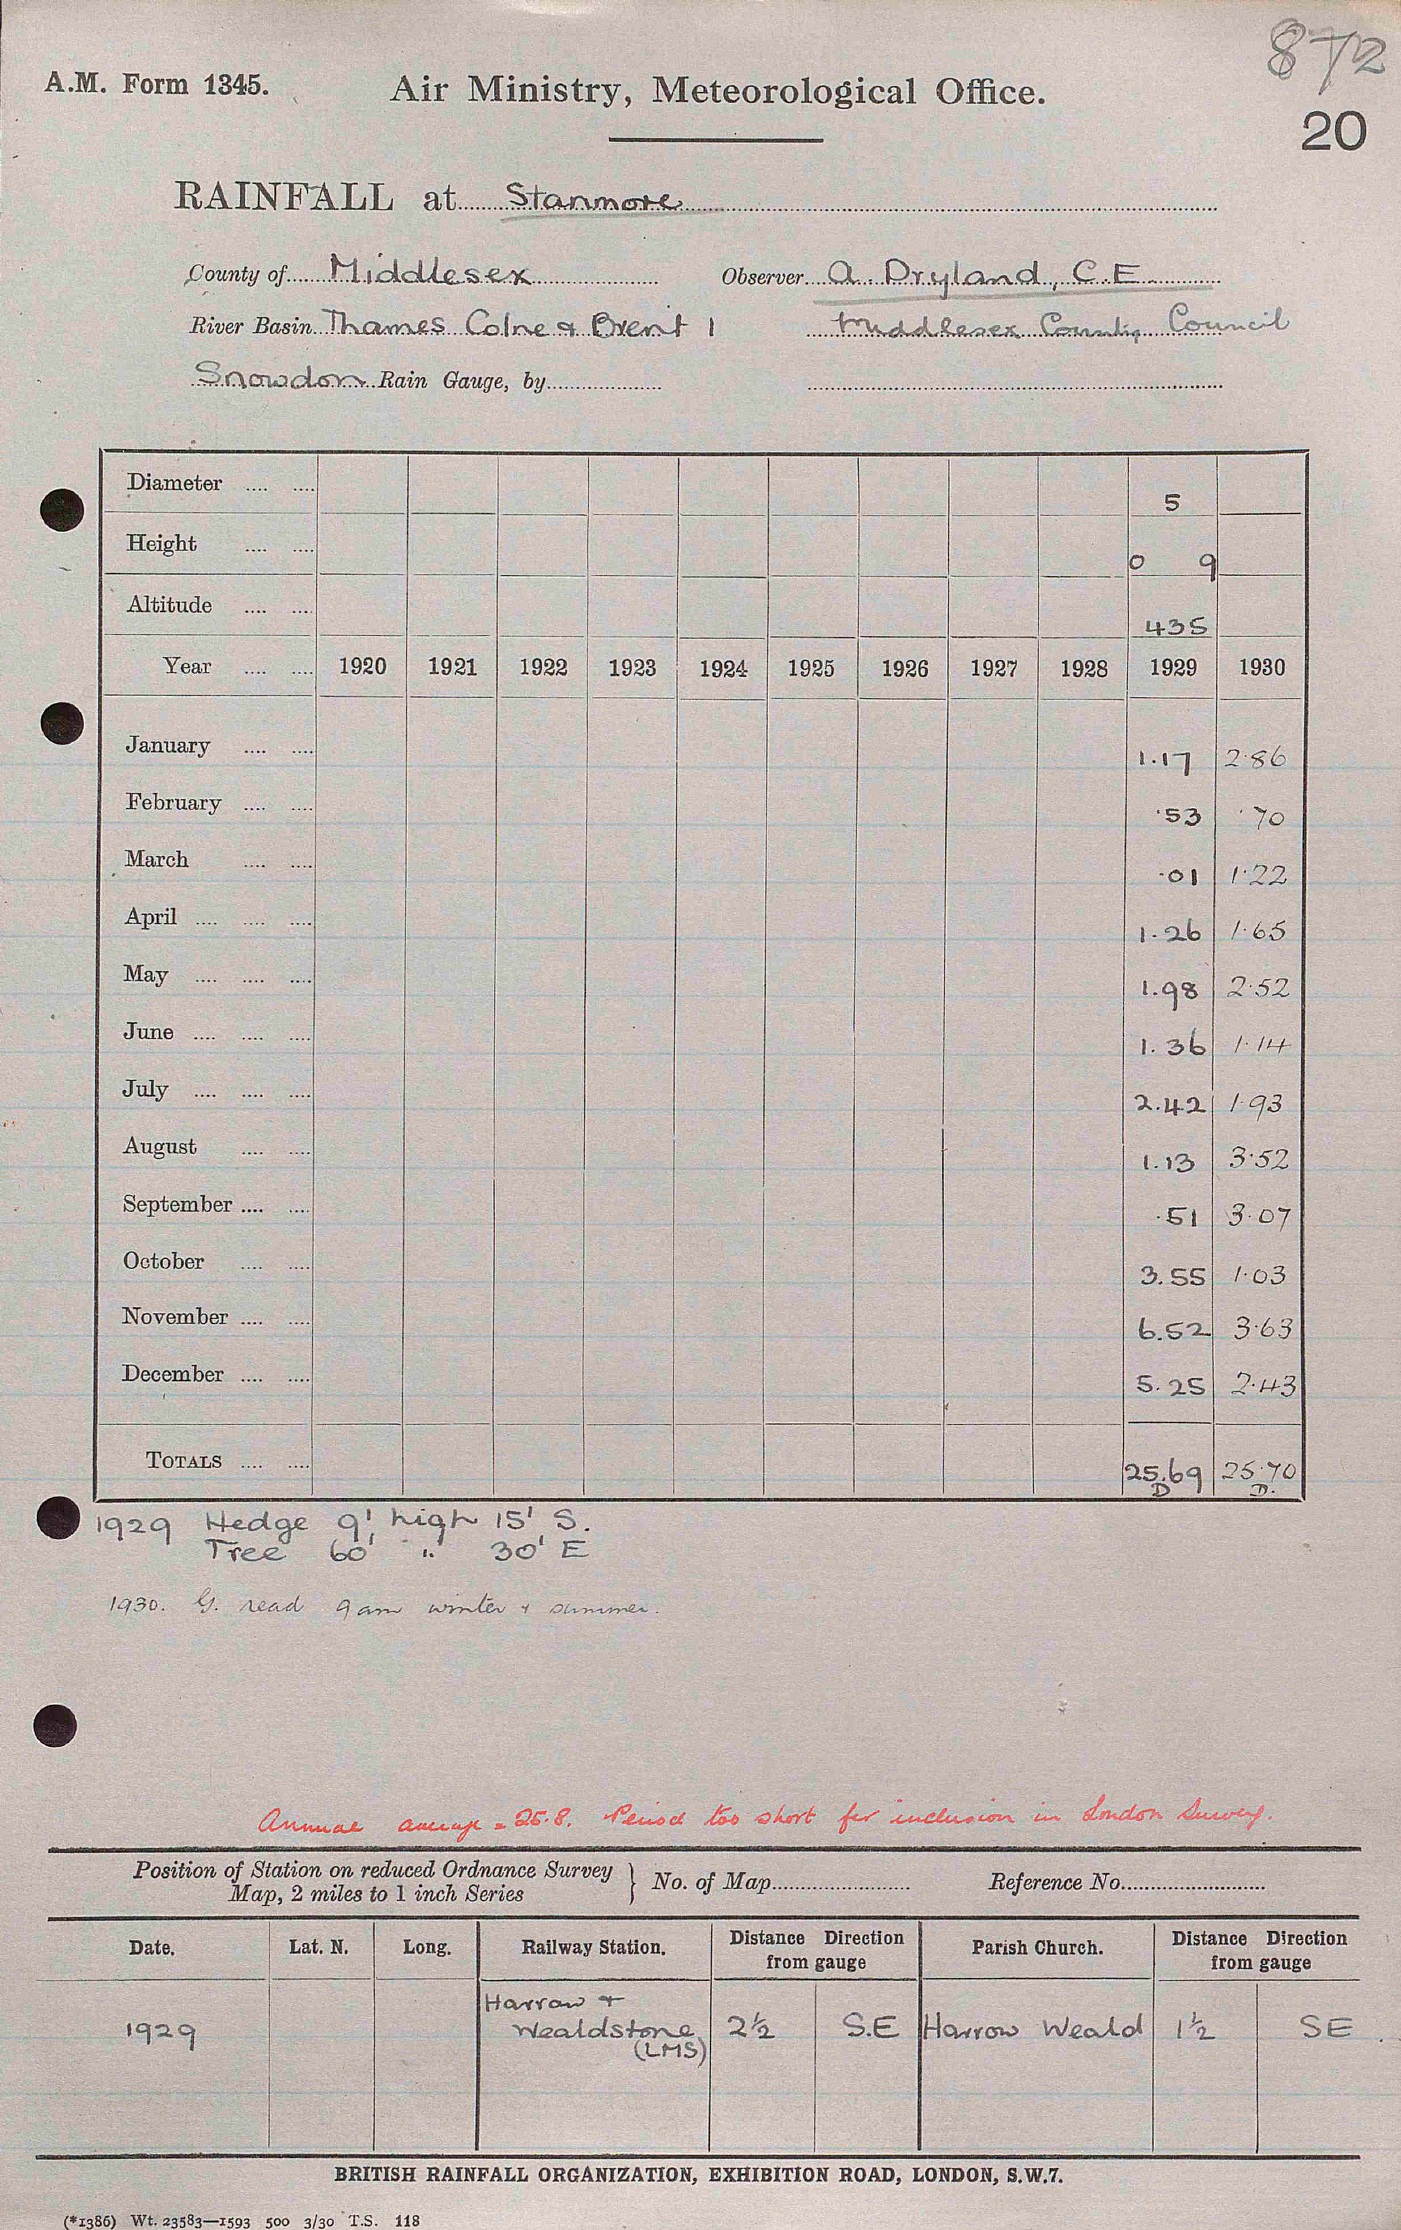 872
A.M. Form 1345.
Air Ministry, Meteorological Office.
20
RAINFALL at Stanmore
County of Middlesex Observer A. Dryland, C.E.
River Basin Thames Colne & Brent 1 Middlesex County Council
Snowdon Rain Gauge, by
Diameter 5
Height 0 9
Altitude 435
Year 1920 1921 1922 1923 1924 1925 1926 1927 1928 1929 1930
January 1.17 2.86
February .53 .70
March .01 1.22
April 1.26 1.65
May 1.98 2.52
June 1.36 1.14
July 2.42 1.93
August 1.13 3.52
September .51 3.07
October 3.55 1.03
November 6.52 3.63
December 5.25 2.43
TOTALS 25.69 25.70
D D.
1929 Hedge 9' high 15' S.
Tree 60' " 30' E
1930. G. read 9am winter & summer.
Annual average = 25.8. Period too short for inclusion in London Survey.
Position of Station on reduced Ordnance Survey
Map, 2 miles to 1 inch Series } No. of Map Reference No.
Date. Lat. N. Long. Railway Station. Distance Direction from gauge Parish Church. Distance Direction from gauge
1929 Harrow & Wealdstone (LMS) 2½ S.E Harrow Weald 1½ SE
BRITISH RAINFALL ORGANIZATION, EXHIBITION ROAD, LONDON, S.W.7.
(*1386) Wt. 23583—1593 500 3/30 T.S. 118